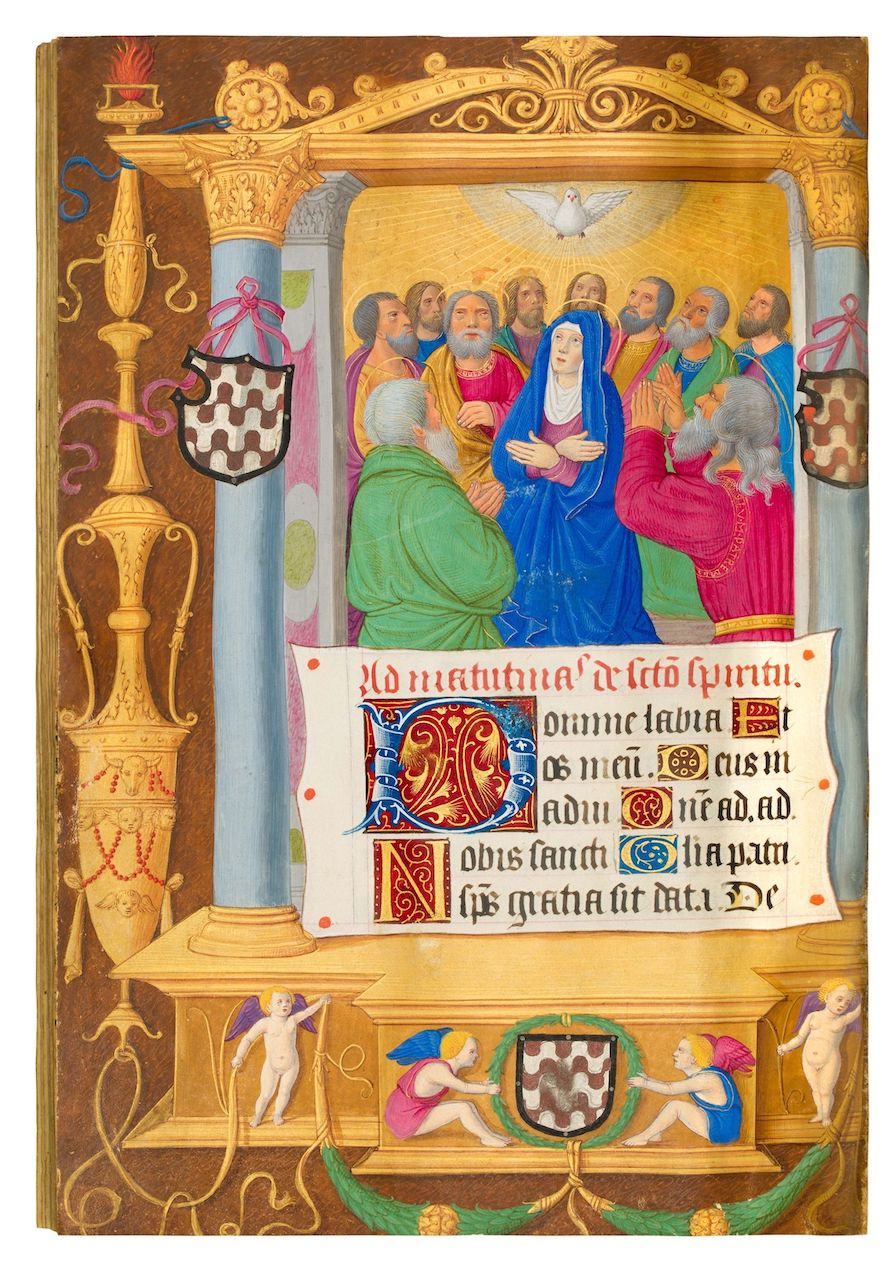 Ad matutinaˢ de sctō spiritu.
Domine labia Et
os meū. Deus in
adiu Dnē ad. ad.
Nobis sancti Glia patri.
sp̄s gratia sit dat. De